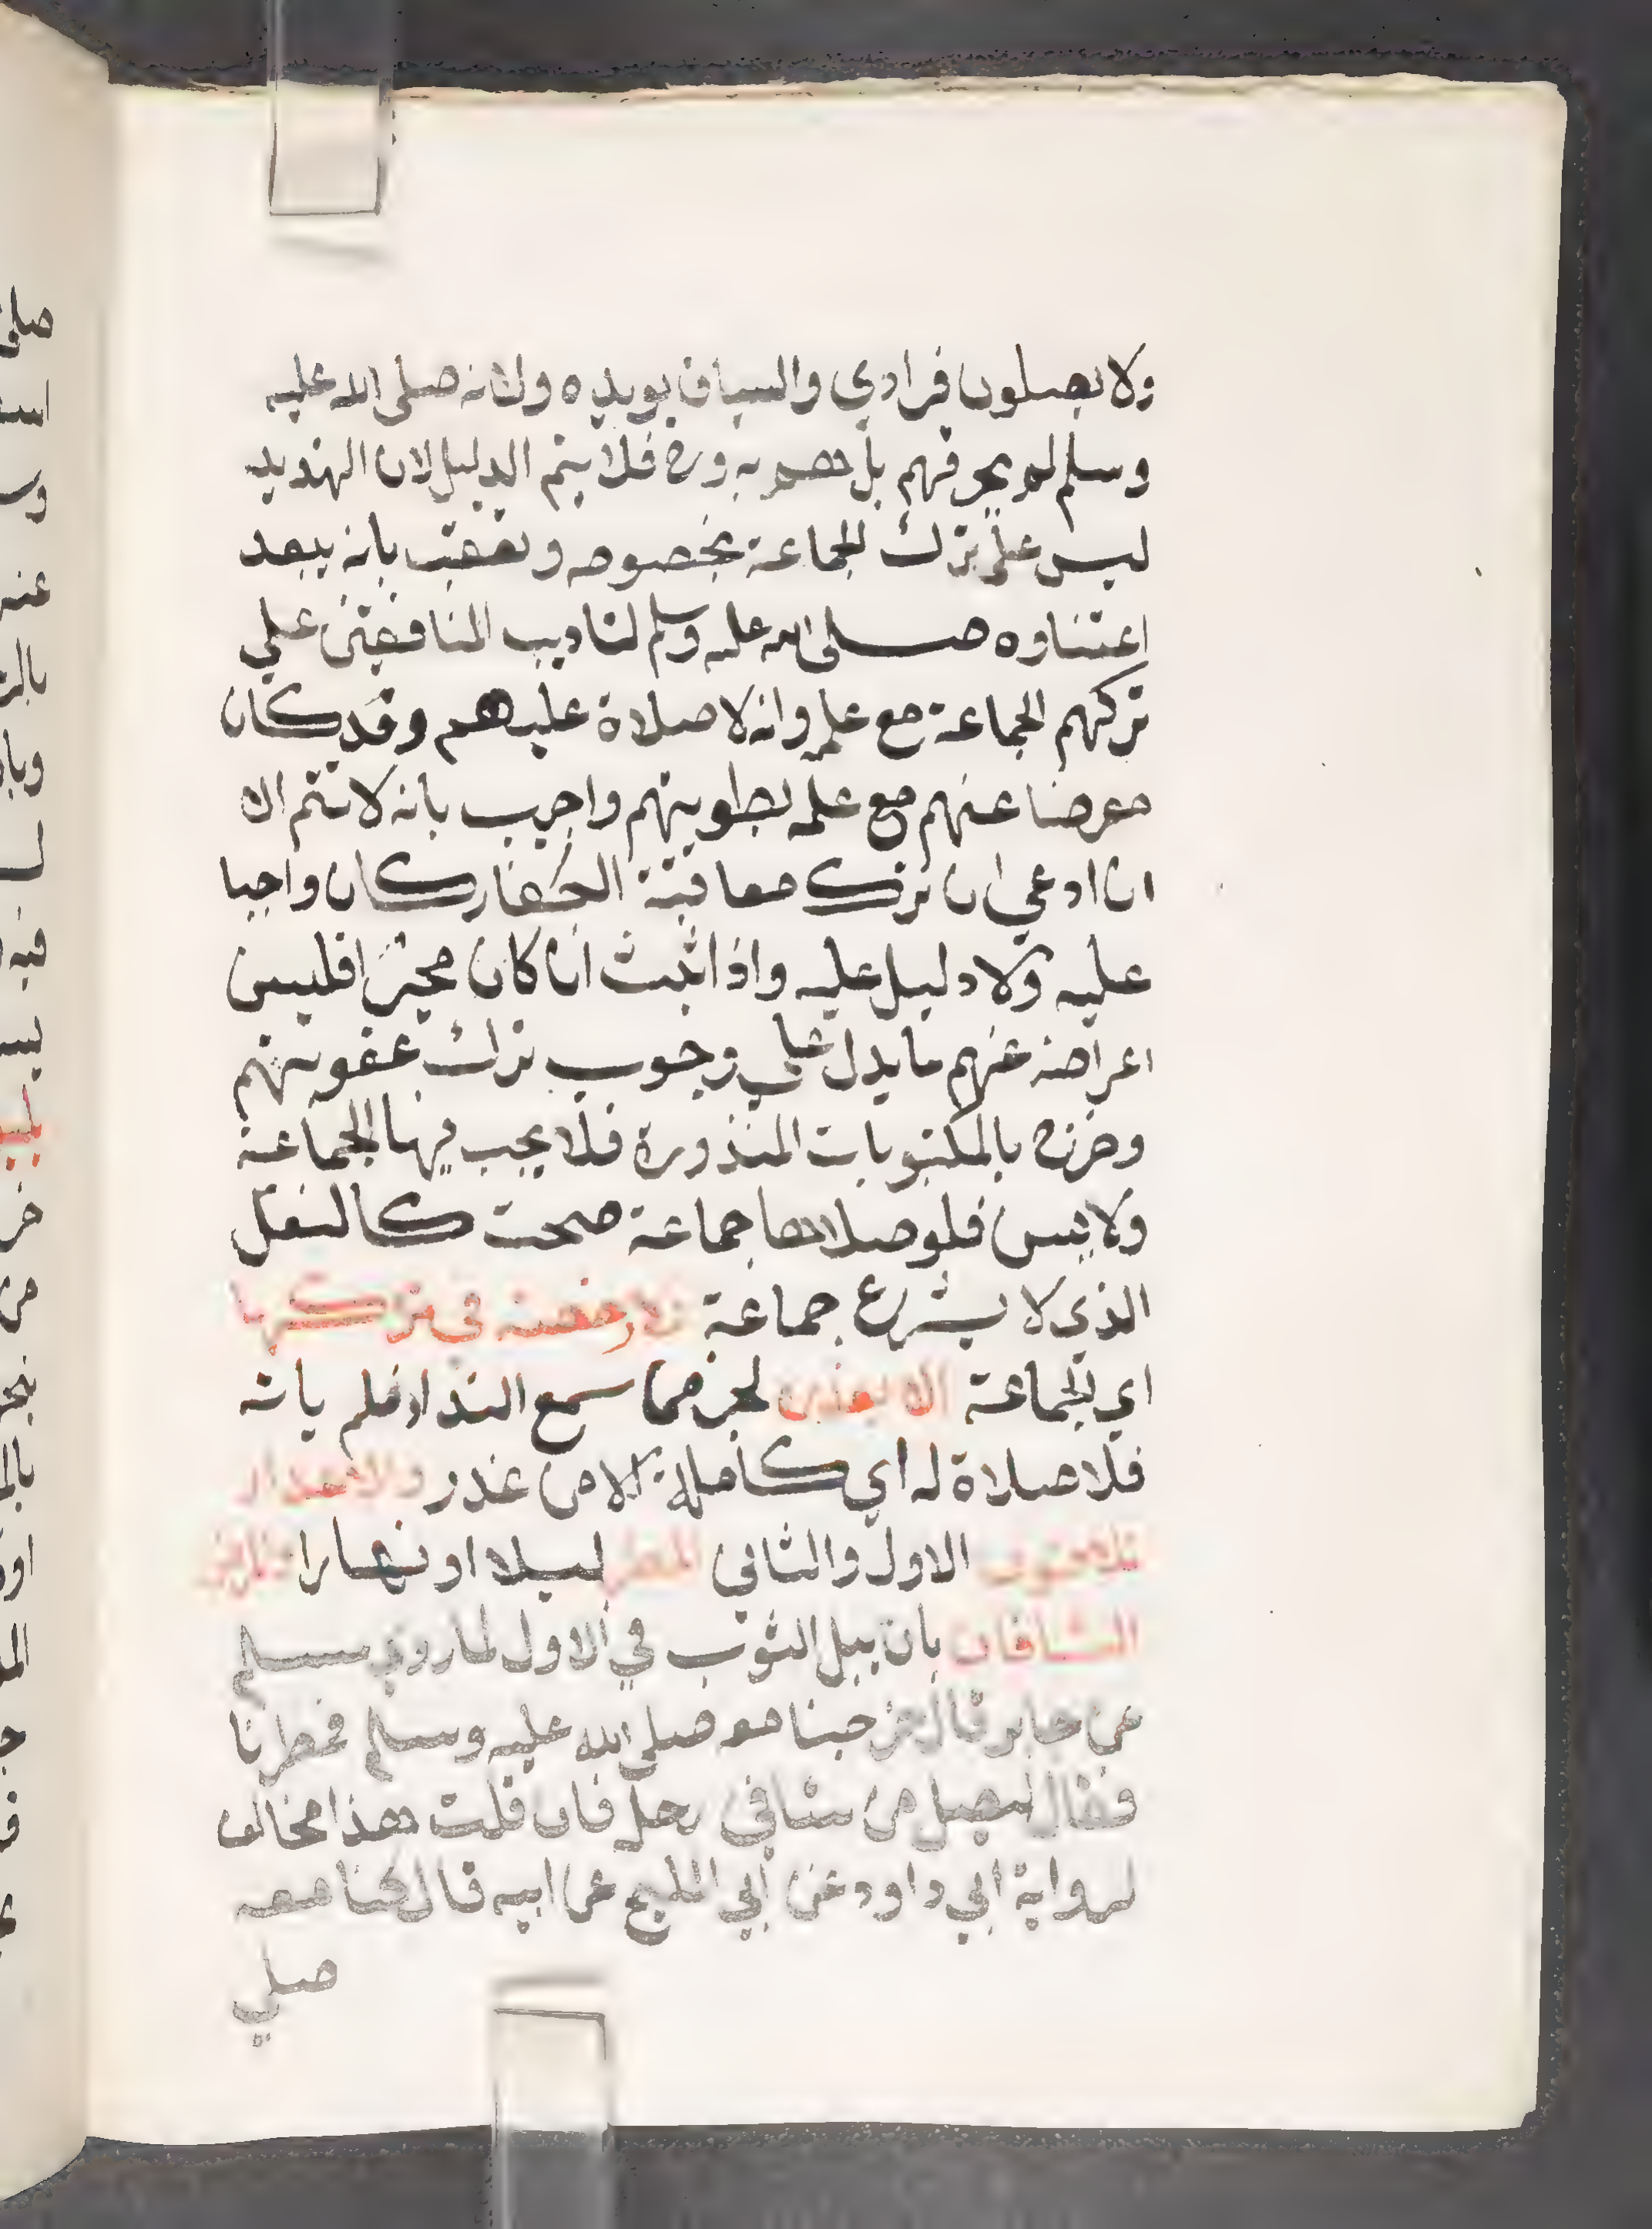 ولا يصلون فرادي والسياق يويده ولانه صلى الله عليه
وسلم لم يحرقهم بل هم به ورد فلا يتم الدليل لان التهديد
ليس على ترك الجماعة بخصوصه وتعقب بانه يبعد
اعتناوه صلى الله عليه وسلم لتاديب المنافقين علي
تركهم الجماعة مع علمه انه لا صلاة عليهم وقد كان
معرضا عنهم مع علمه بطويتهم واجيب بانه لا تتم الا
ان ادعي ان ترك معاقبة الكفار كان واجبا
عليه ولا دليل عليه واذا ثبت انه كان مخيرا فليس
اعراضه عنهم ما يدل علي وجوب ترك عقوبتهم
وخرج بالمكتوبات المنذورة فلا يجب فيها الجماعة
ولا يسن فلو صلاها جماعة صحت كالنفل
الذي لا يشرع جماعة فلا رخصة في تركها
اي الجماعة الا بعذر لخبر من سمع الندا فلم ياته
فلا صلاة له اي كاملة الا من عذر والاعذار
ثلاثون الاول والثاني المطر ليلا او نهارا والثلج
الشاقان بان يبل الثوب في الاول لما روي مسلم
عن جابر قال خرجنا معه صلى الله عليه وسلم فمطرنا
فقال ليصل من شا في رحله فان قلت هذا مخالف
لرواية ابي داود عن ابي المليح عن ابيه قال كنا معه
صلي